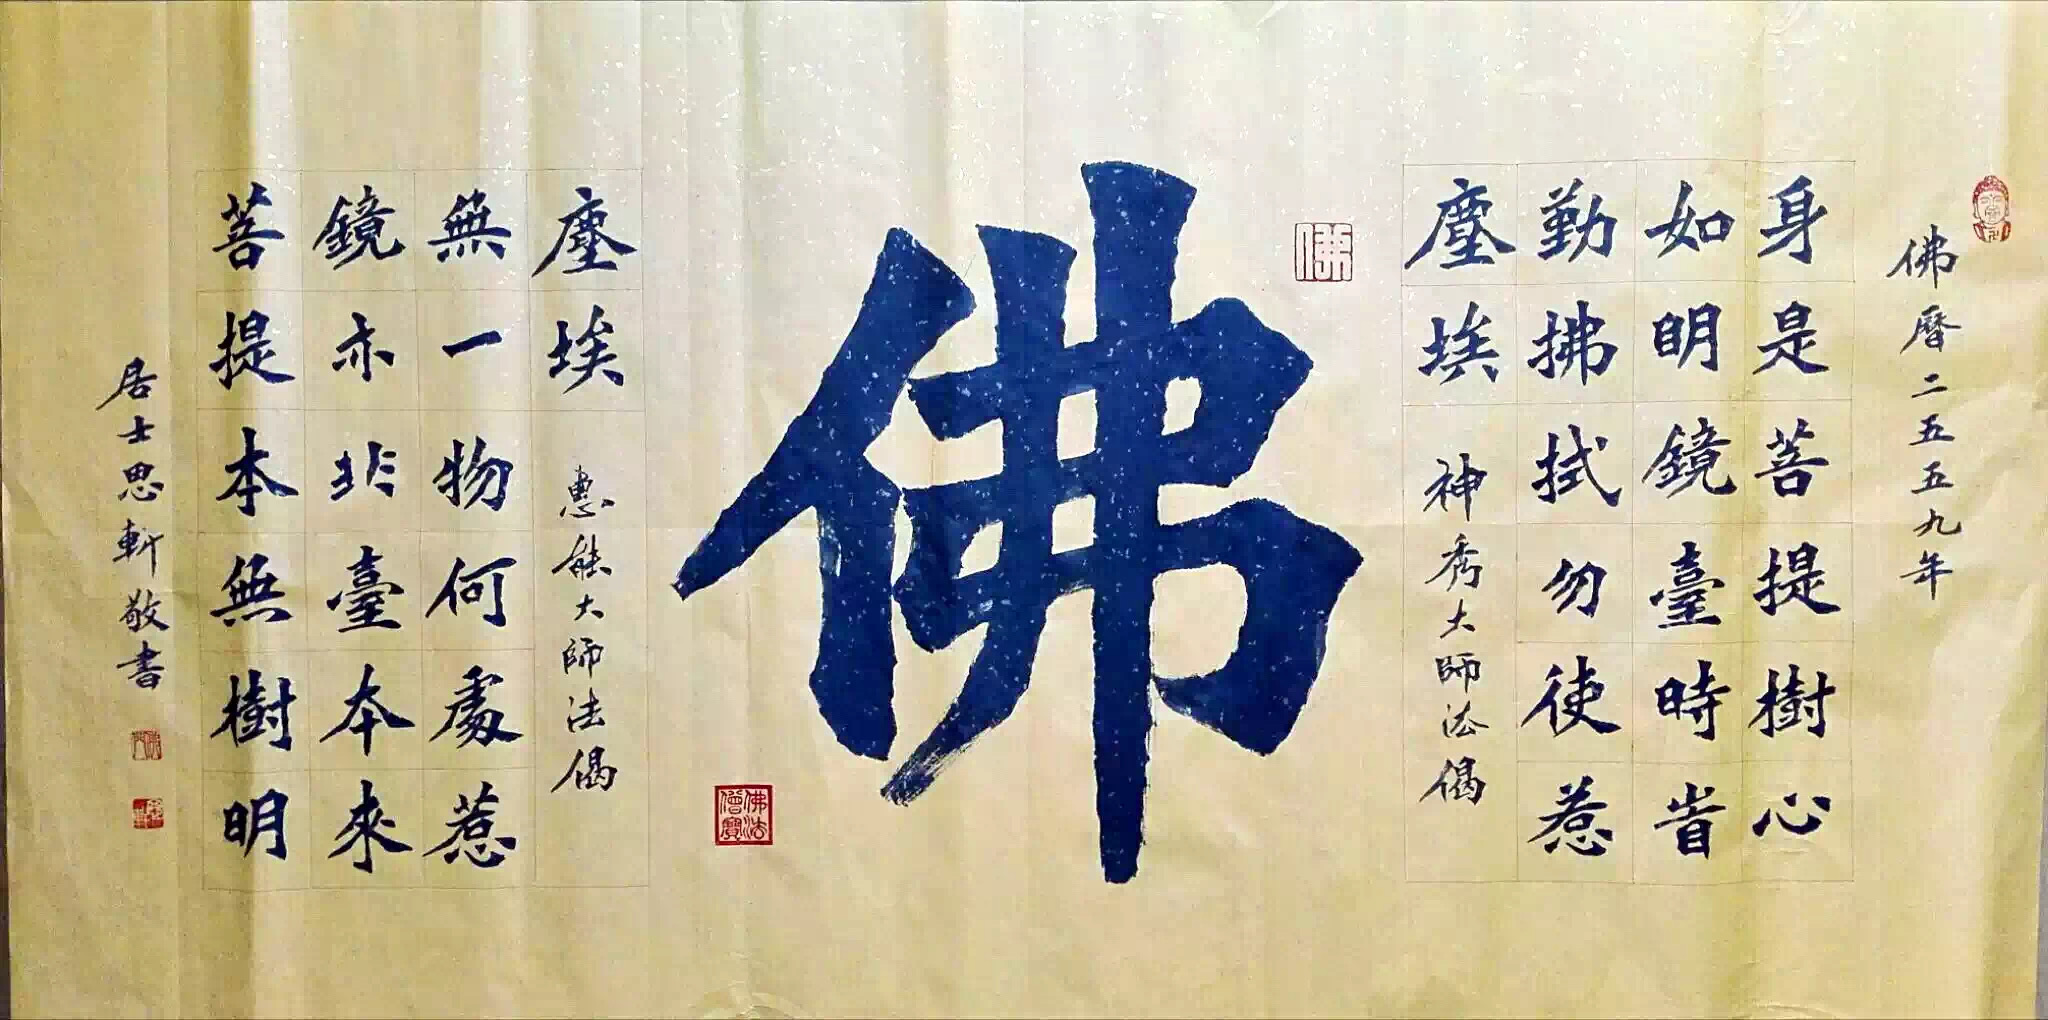 佛曆二五五九年
身是菩提樹心
如明鏡臺時旹
勤拂拭勿使惹
塵埃 神秀大師法偈
佛
佛
佛法僧寶
菩提本無樹明
鏡亦非臺本來
無一物何處惹
塵埃 惠能大師法偈
居士思軒敬書